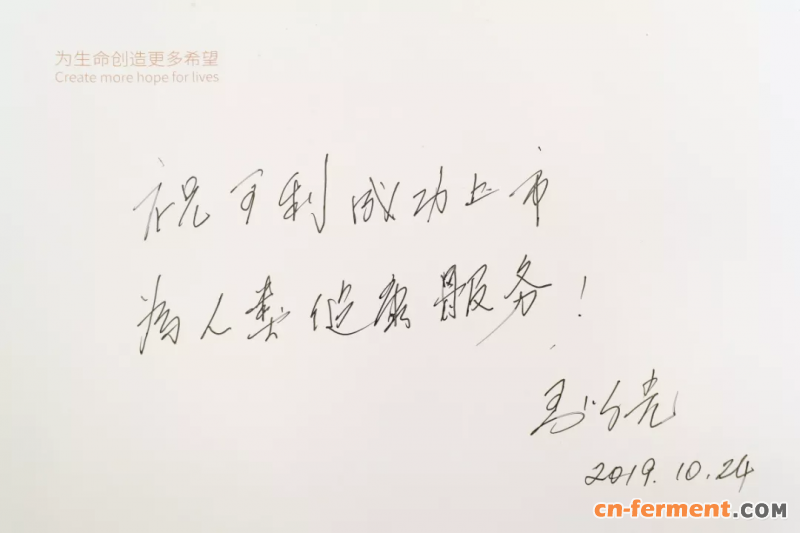 为生命创造更多希望
Create more hope for lives
祝可利成功上市
为人类健康服务!
2019.10.24
cn-ferment.com